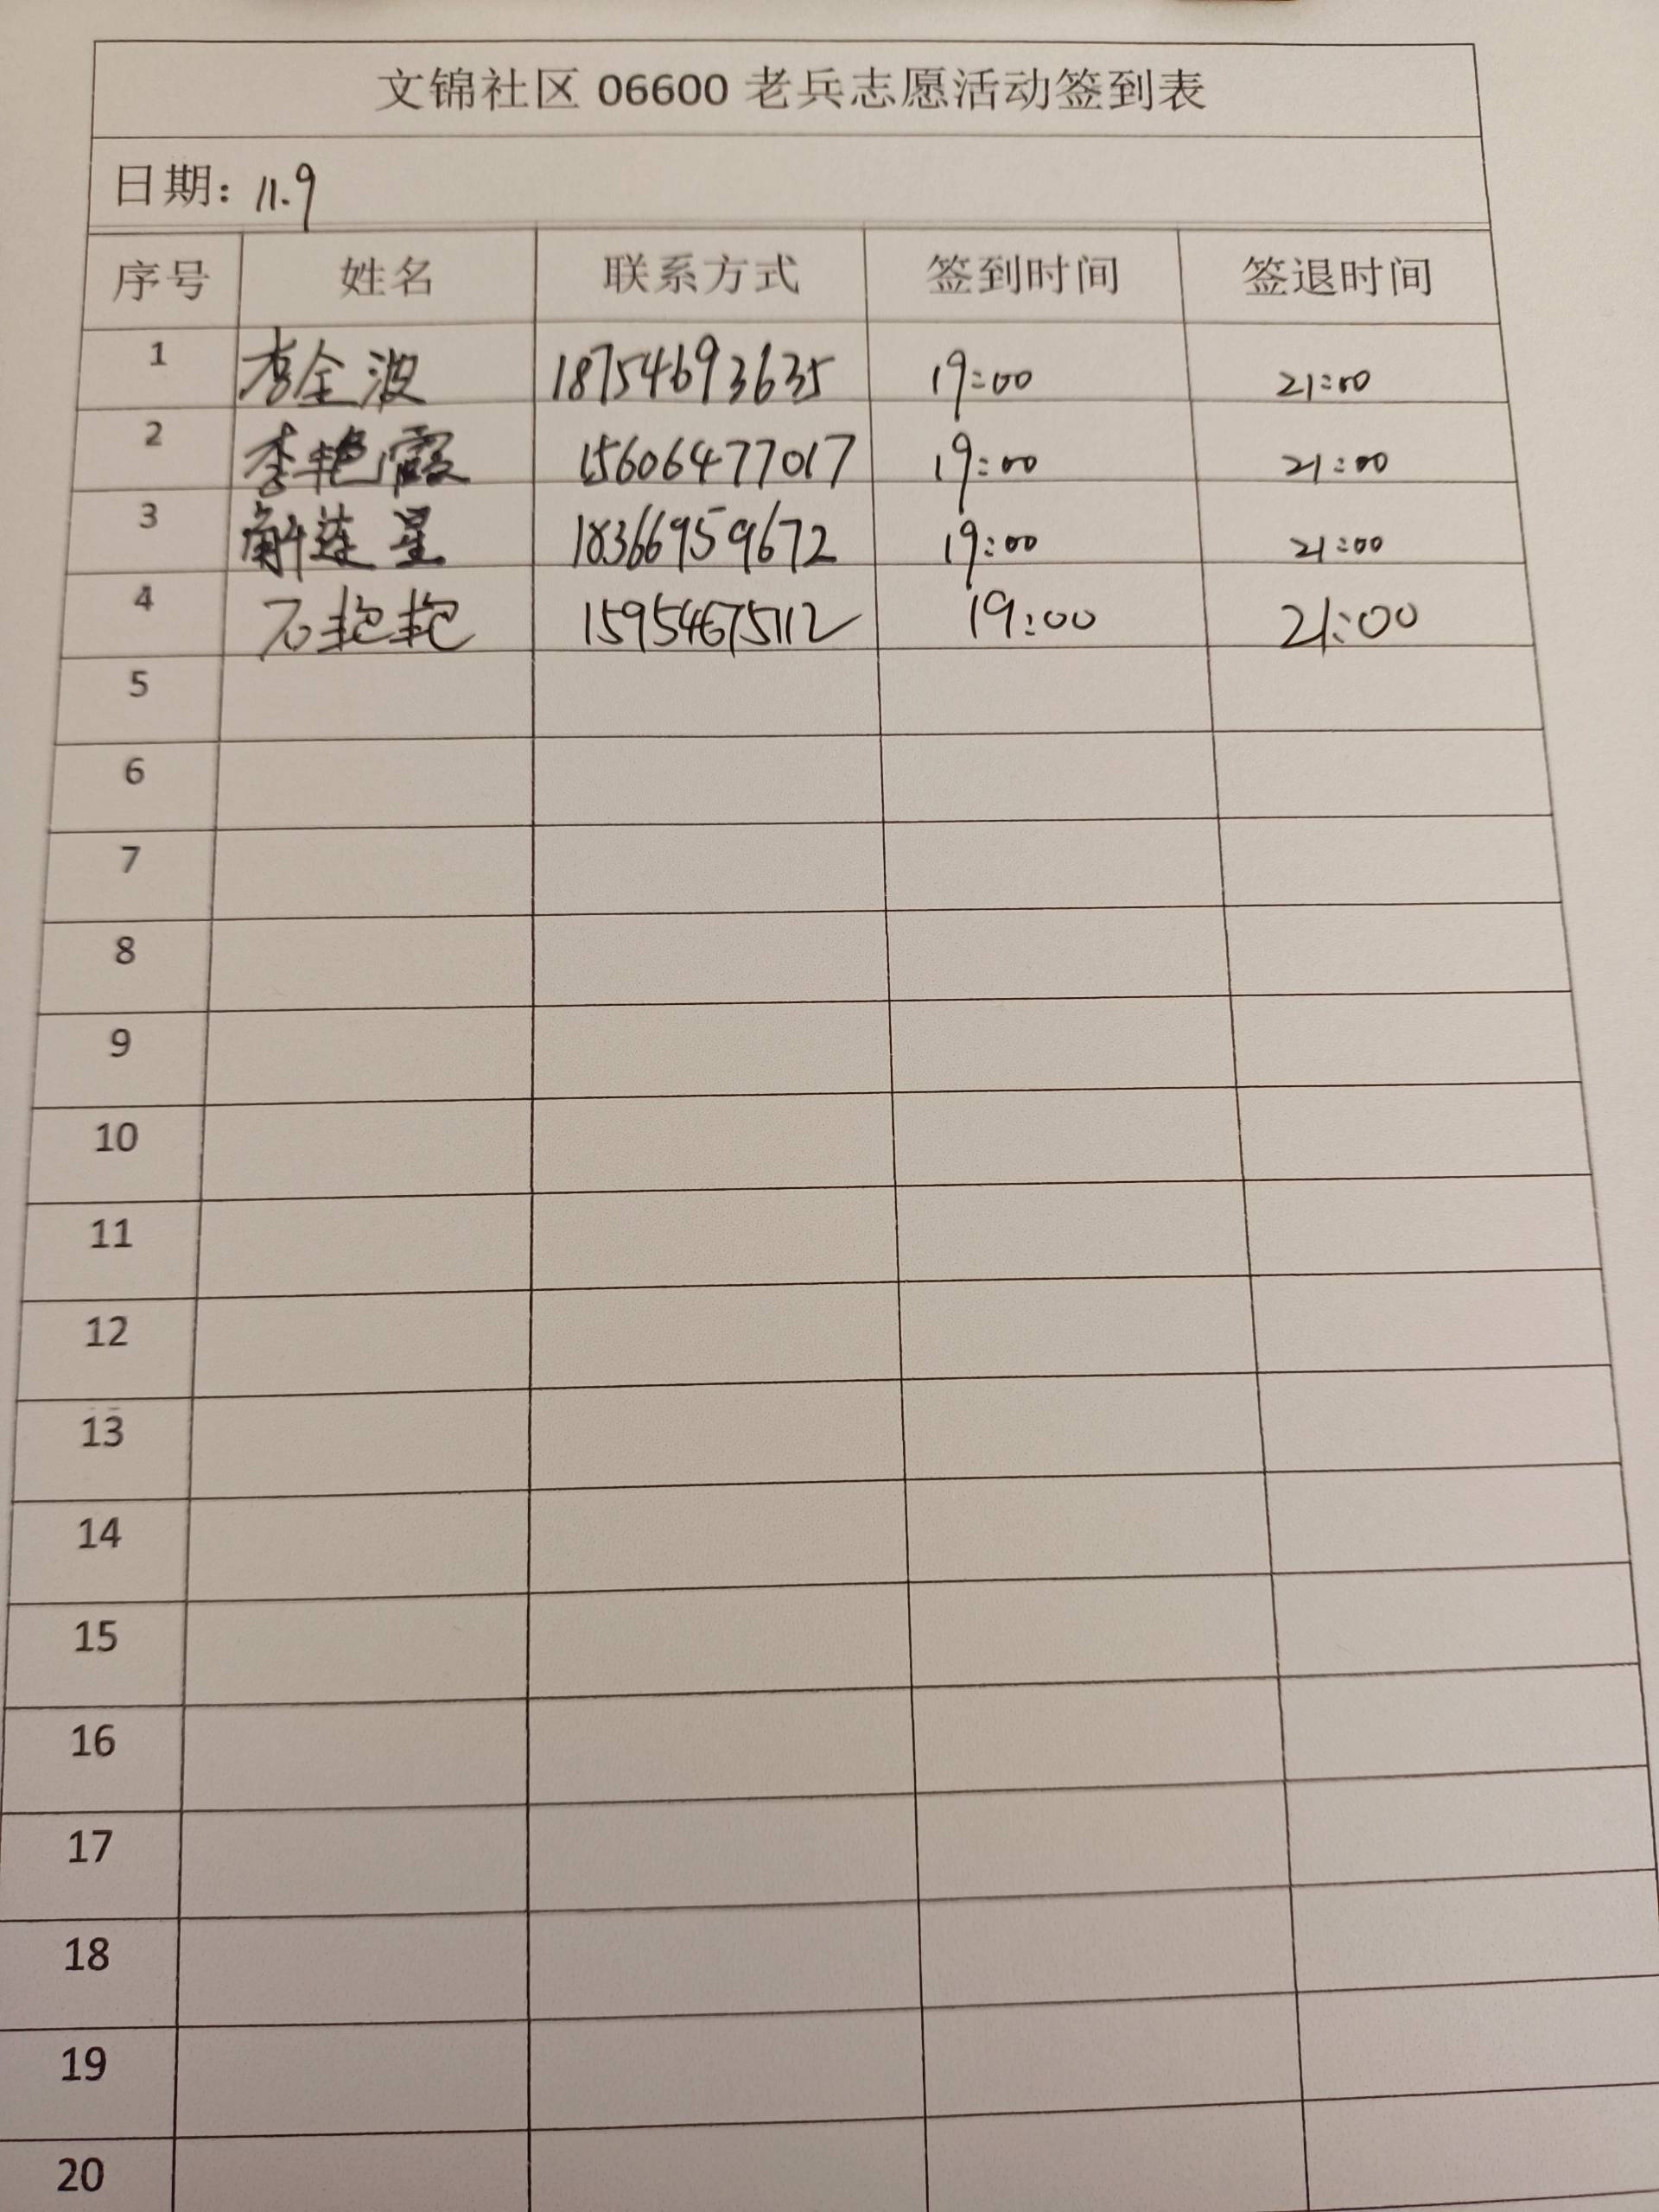 文锦社区 06600 老兵志愿活动签到表
日期: 11.9
序号 姓名 联系方式 签到时间 签退时间
1 李全波 18754693635 19:00 21:00
2 李艳霞 15606477017 19:00 21:00
3 解莲星 18366959672 19:00 21:00
4 石艳艳 15954675112 19:00 21:00
5
6
7
8
9
10
11
12
13
14
15
16
17
18
19
20